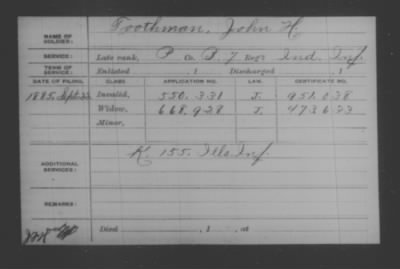 NAME OF SOLDIER: Toothman, John H.
SERVICE: Late rank, P Co. B. 7 Reg't Ind. Inf.
TERM OF SERVICE: Enlisted , 1 Discharged , 1
DATE OF FILING. CLASS. APPLICATION NO. LAW. CERTIFICATE NO.
1885, Sept. 22 Invalid, 550.331 J. 951.038
Widow, 668.928 J. 473623
Minor,
ADDITIONAL SERVICES: K. 155. Ills Inf.
REMARKS:
Died , 1 , at